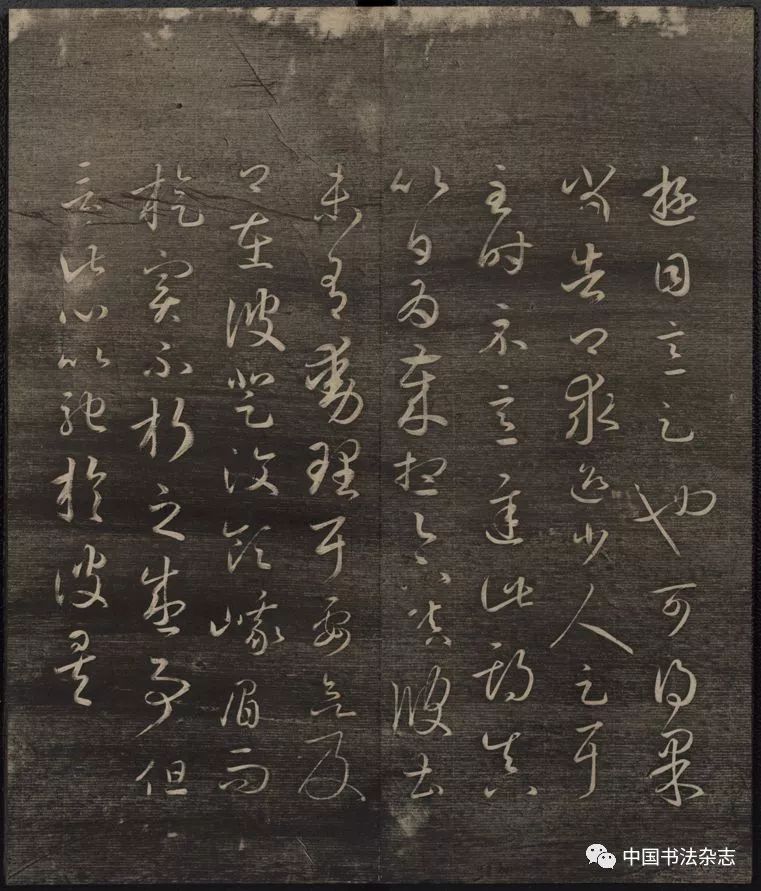 遊目意足也可得果
當告卿求迎少人足耳
至時示意遲此期真
以日為歲想足下鎮彼土
未有動理耳要欲及
卿在彼登汶領峨眉而
旋實不朽之盛事但
言此心以馳於彼矣
中国书法杂志